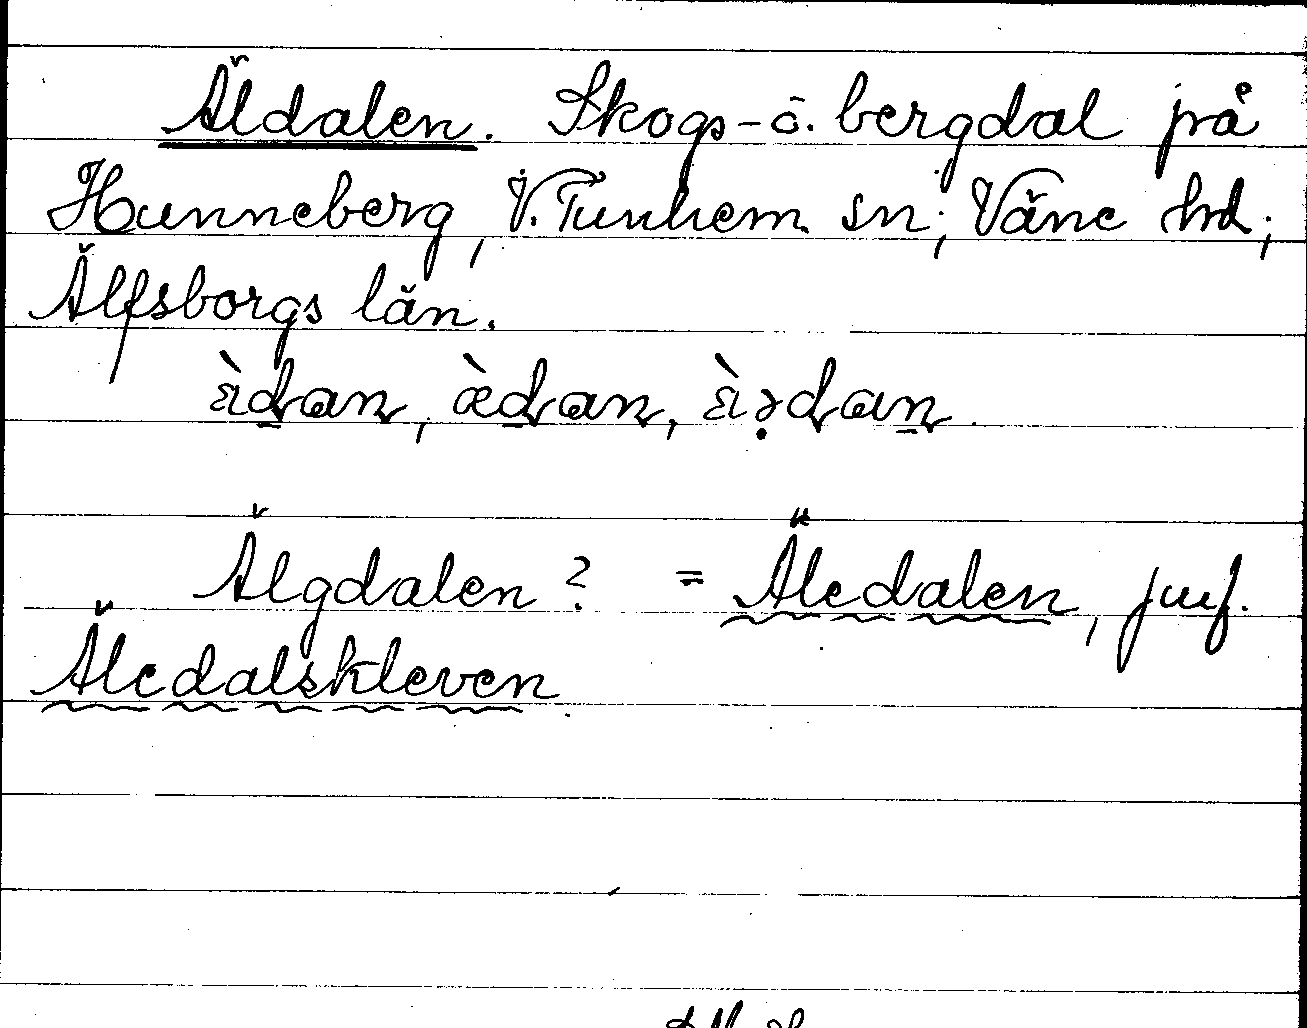 Äldalen. Skogs- o. bergdal på
Hunneberg, V. Tunhem sn; Väne hd;
Älfsborgs län.
ɛ̀dan, æ̀dan, ɛ̀ədan
Älgdalen? = Äledalen, jmf.
Äledalskleven